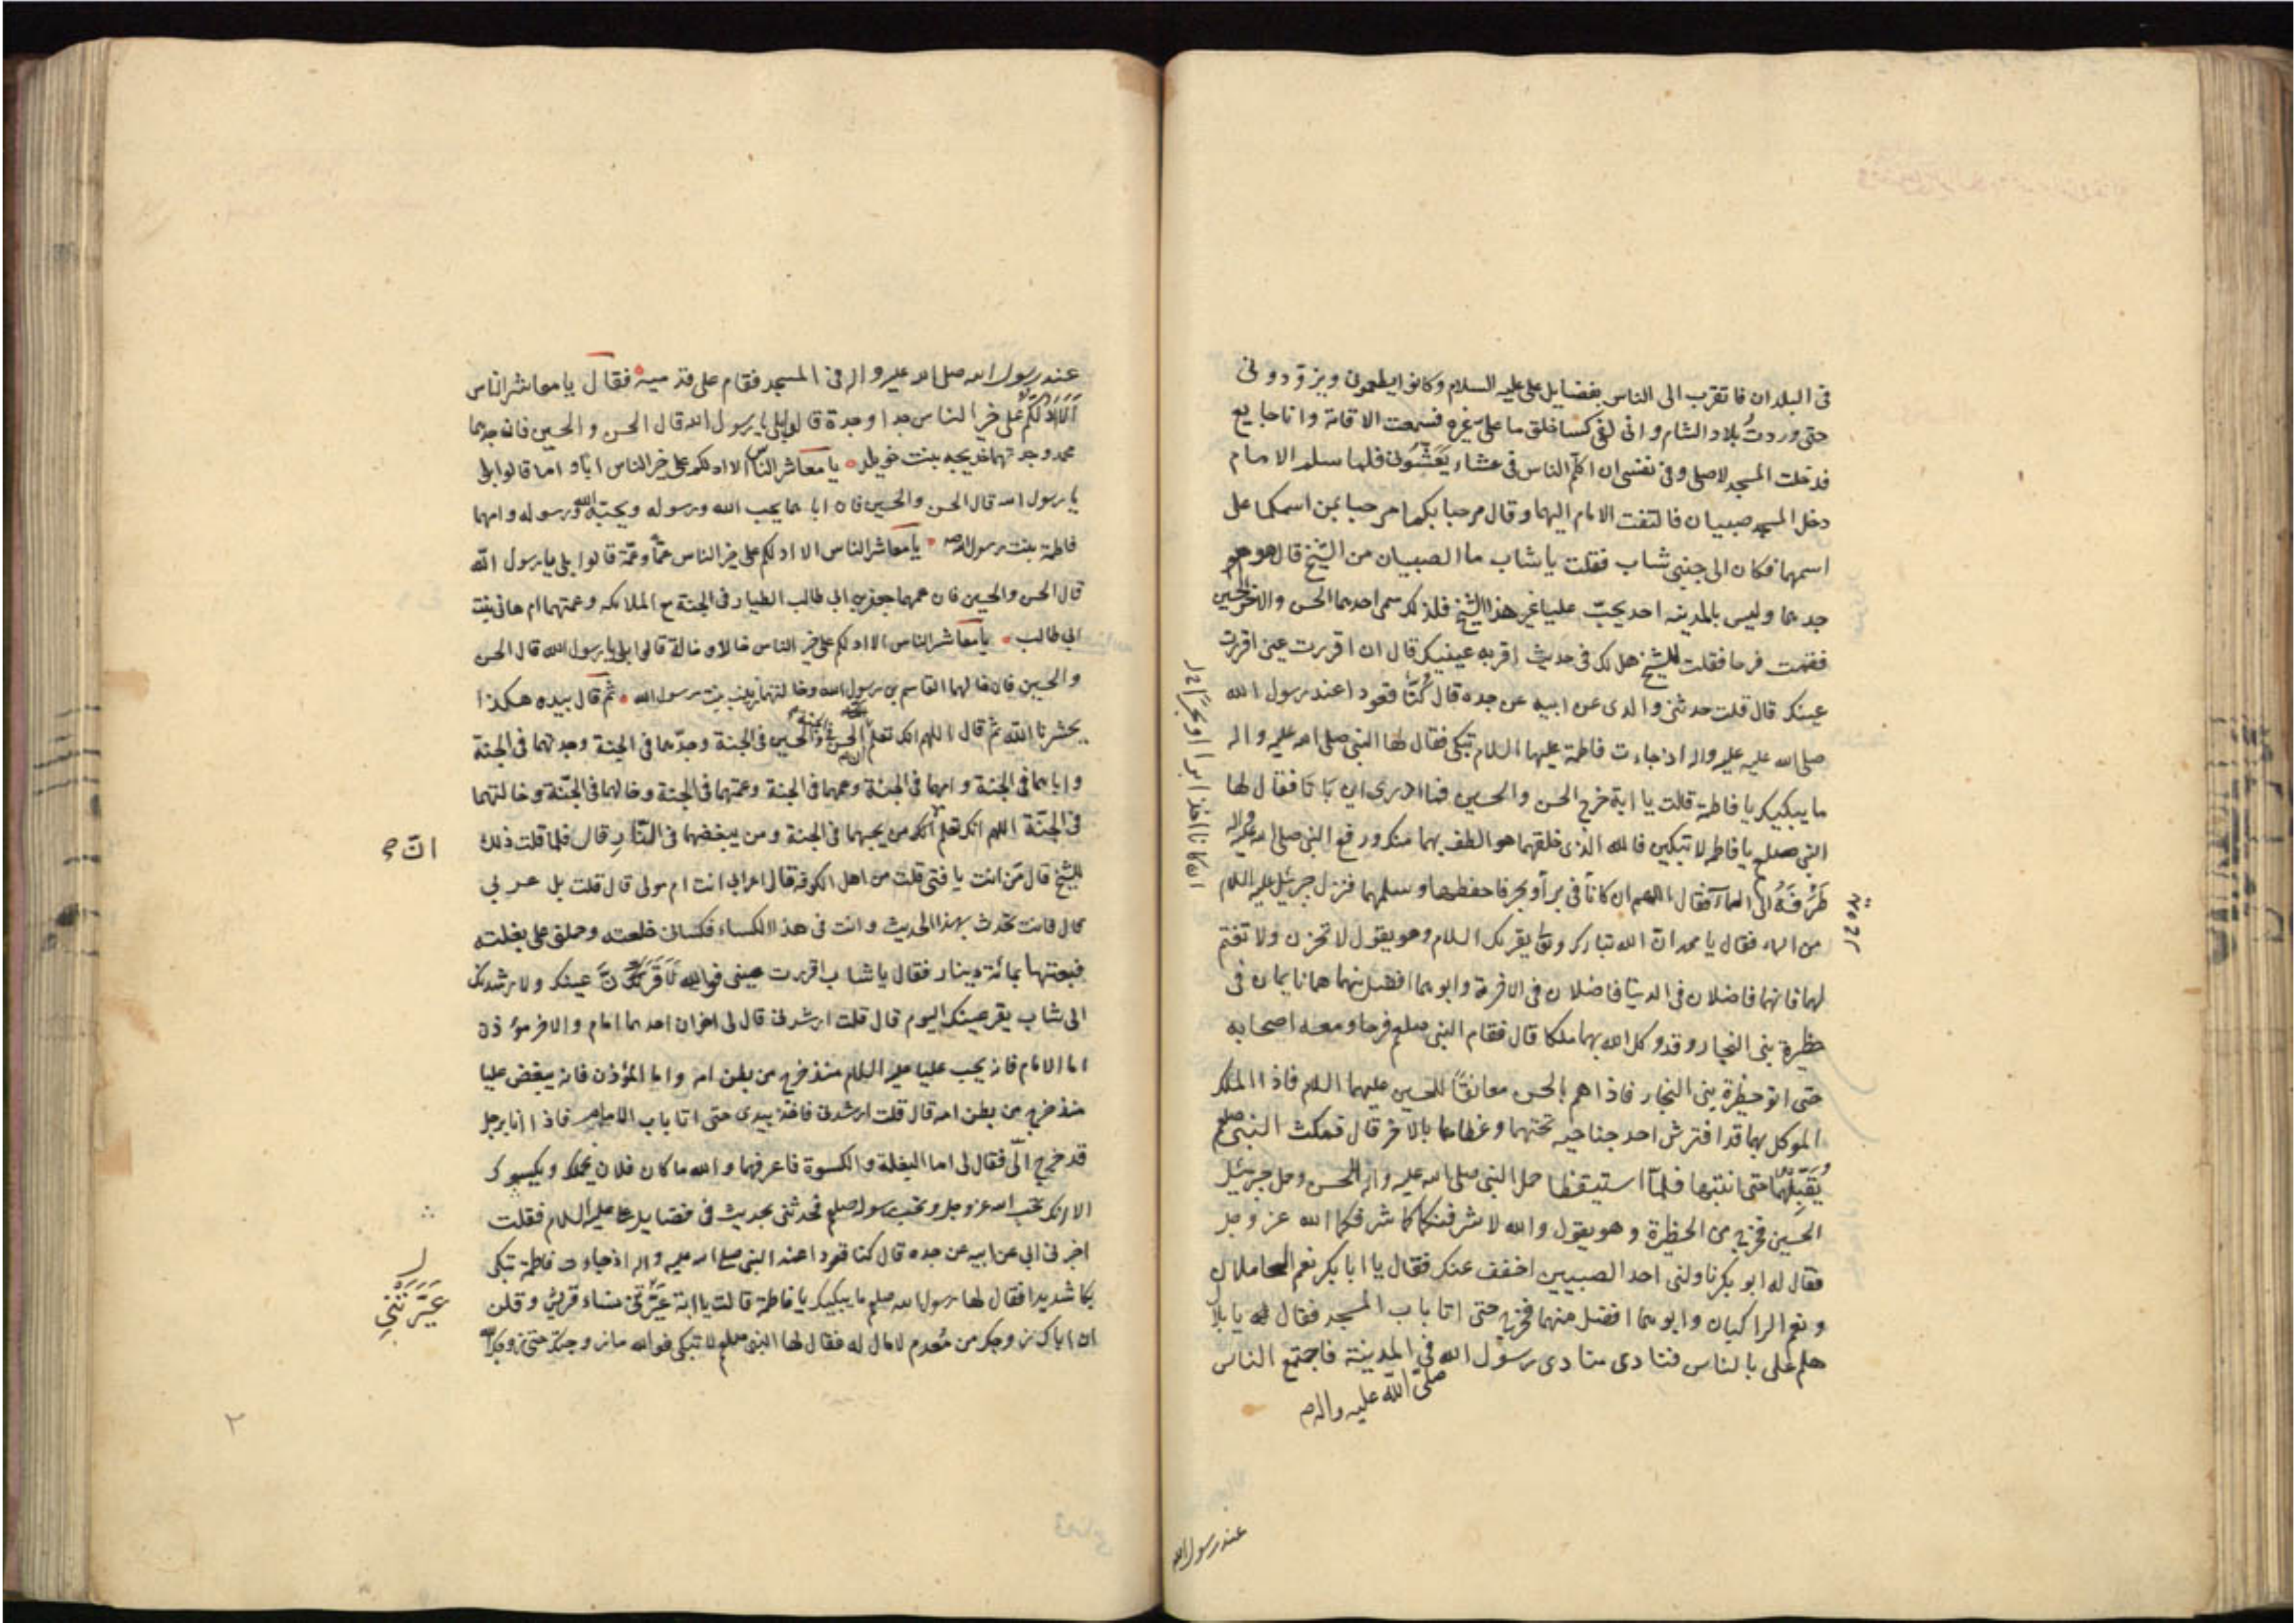 فى البلدان فاتقرب الى الناس بفضايل على عليه السلام وكانوا يطعمونى ويزودونى
حتى وردت بلاد الشام وانى لفى كسا خلق ما على غيره فسمعت الاقامة وانا جايع
فدخلت المسجد لاصلى وفى نفسى ان اكلم الناس فى عشاء يعشونى فلما سلم الامام
دخل المسجد صبيان فالتفت الامام اليهما وقال مرحبا بكما مرحبا بمن اسمكما على
اسمهما فكان الى جنبى شاب فقلت يا شاب ما الصبيان من الشيخ قال هو
جدهما وليس بالمدينه احد يحبّ عليا غير هذا الشيخ فلذلك سمى احدهما الحسن والاخر الحسين
فقمت فرحا فقلت للشيخ هل لك فى حديث اقر به عينيك قال ان اقررت عينى اقررت
عينك قال قلت حدثنى والدى عن ابيه عن جده قال كُنّا قعودا عند رسول الله
صلى الله عليه عليه واله اذ جاءت فاطمة عليها السلام تبكى فقال لها النبى صلى الله عليه واله
ما يبكيك يا فاطمة قالت يا ابة خرج الحسن والحسين فما ادرى اين باتا فقال لها
النبى صلعم يا فاطمه لا تبكين فالله الذى خلقهما هو الطف بهما منك ورفع النبى صلى الله عليه واله
طَرْفَهُ الى السماء فقال اللهم ان كانا فى بر أو بحر فاحفظهما وسلمهما فنزل جبرئيل عليه السلام
من السماء فقال يا محمد انّ الله تبارك وتعا يقرئك السلام وهو يقول لا تحزن ولا تغتم
لهما فانهما فاضلان فى الدنيا فاضلان فى الاخرة وابوهما افضل منهما هما نايمان فى
حظيرة بنى النجار وقد وكل الله بهما ملكا قال فقام النبى صلعم فرحا ومعه اصحابه
حتى اتو حظيرة بنى النجار فاذا هم بالحسن معانقًا للحسين عليهما السلام فاذا الملك
الموكل بهما قد افترش احد جناحيه تحتهما وغطاهما بالآخر قال فمكث النبى صلعم
يُقَبِّلُهُما حتى انتبها فلمآ استيقظا حمل النبى صلى الله عليه واله الحسن وحمل جبرئيل
الحسين فخرج من الحظيرة وهو يقول والله لاشرفنكما كما شرفكما الله عز وجل
فقال له ابو بكر ناولنى احد الصبيين اخفف عنك فقال يا ابا بكر نعم الحاملان
ونعم الراكبان وابوهما افضل منهما فخرج حتى اتا باب المسجد فقال يا بلال
هلم على بالناس فنادى منادى رسول الله فى المدينة فاجتمع الناس
صلى الله عليه واله
عند رسول الله
عند رسول الله صلى الله عليه واله فى المسجد فقام على قدميه فقال يا معاشر الناس
اَلا اَدُلُّكُم على خير الناس جدا وجدة قالوا بلى يا رسول الله قال الحسن والحسين فان جدهما
محمد وجدتهما خديجه بنت خويلد يا معاشر الناس الا ادلكم على خير الناس ابًا و اما قالوا بلى
يا رسول الله قال الحسن والحسين فان اباهما يحب الله ورسوله ويحبّه الله ورسوله وامهما
فاطمة بنت رسول الله يا معاشر الناس الا ادلكم على خير الناس عمّاً وعمّة قالوا بلى يا رسول الله
قال الحسن والحسين فان عمهما جعفر بن ابى طالب الطيار فى الجنة مع الملائكه وعمتهما ام هانى بنت
ابى طالب يا معاشر الناس الا ادلكم على خير الناس خالا و خالة قالوا بلى يا رسول الله قال الحسن
والحسين فان خالهما القاسم بن رسول الله وخالتهما زينب بنت رسول الله ثم قال بيده هكذا
يحشرنا الله ثم قال اللهم انك تعلم ان الحسن فى الجنة والحسين فى الجنة وجدّهما فى الجنة وجدتهما فى الجنة
واباهما فى الجنة وامهما فى الجنة وعمهما فى الجنة وعمتهما فى الجنة وخالهما فى الجنّة وخالتهما
فى الجنّة اللهم انك تعلم انك من يحبهما فى الجنة ومن يبغضهما فى النّار قال فلما قلت ذلك
انّ
للشيخ قال مَن انت يا فتى قلت من اهل الكوفة قال اعرابى انت ام مولى قال قلت بل عربى
قال فانت تحدث بهذا الحديث وانت فى هذا الكساء فكسانى خلعته وحملنى على بغلته
فبعتها بمائة دينار فقال يا شاب اقررت عينى فوالله لَاُقِرَّنَّ عينك ولا رشدنك
الى شاب يقر عينك اليوم قال قلت ارشدنى قال لى اخوان احدهما امام والاخر مؤذن
اما الامام فانه يحب عليا عليه السلام منذ خرج من بطن امه واما المؤذن فانه يبغض عليا
منذ خرج من بطن امه قال قلت ارشدنى فاخذ بيدى حتى اتا باب الامام فاذا انا برجل
قد خرج الىّ فقال لى اما البغلة والكسوة فاعرفهما والله ما كان فلان يحملك ويكسوك
الا انك تحب الله عز وجل وتحب رسوله صلعم فحدثنى بحديث فى فضايل على عليه السلام فقلت
اخبرنى ابى عن ابيه عن جده قال كنا قعودا عند النبى صلى الله عليه واله اذ جاءت فاطمة تبكى
بكا شديدا فقال لها رسول الله صلعم ما يبكيك يا فاطمة قالت يا ابة عَيَّرَتْنى نساء قريش وقلن
عَيَّرَتْنِى
ان اباك زوجك من مُعدم لا مال له فقال لها النبى صلعم لا تبكى فوالله ما زوجتك حتى زوجك الله
٢